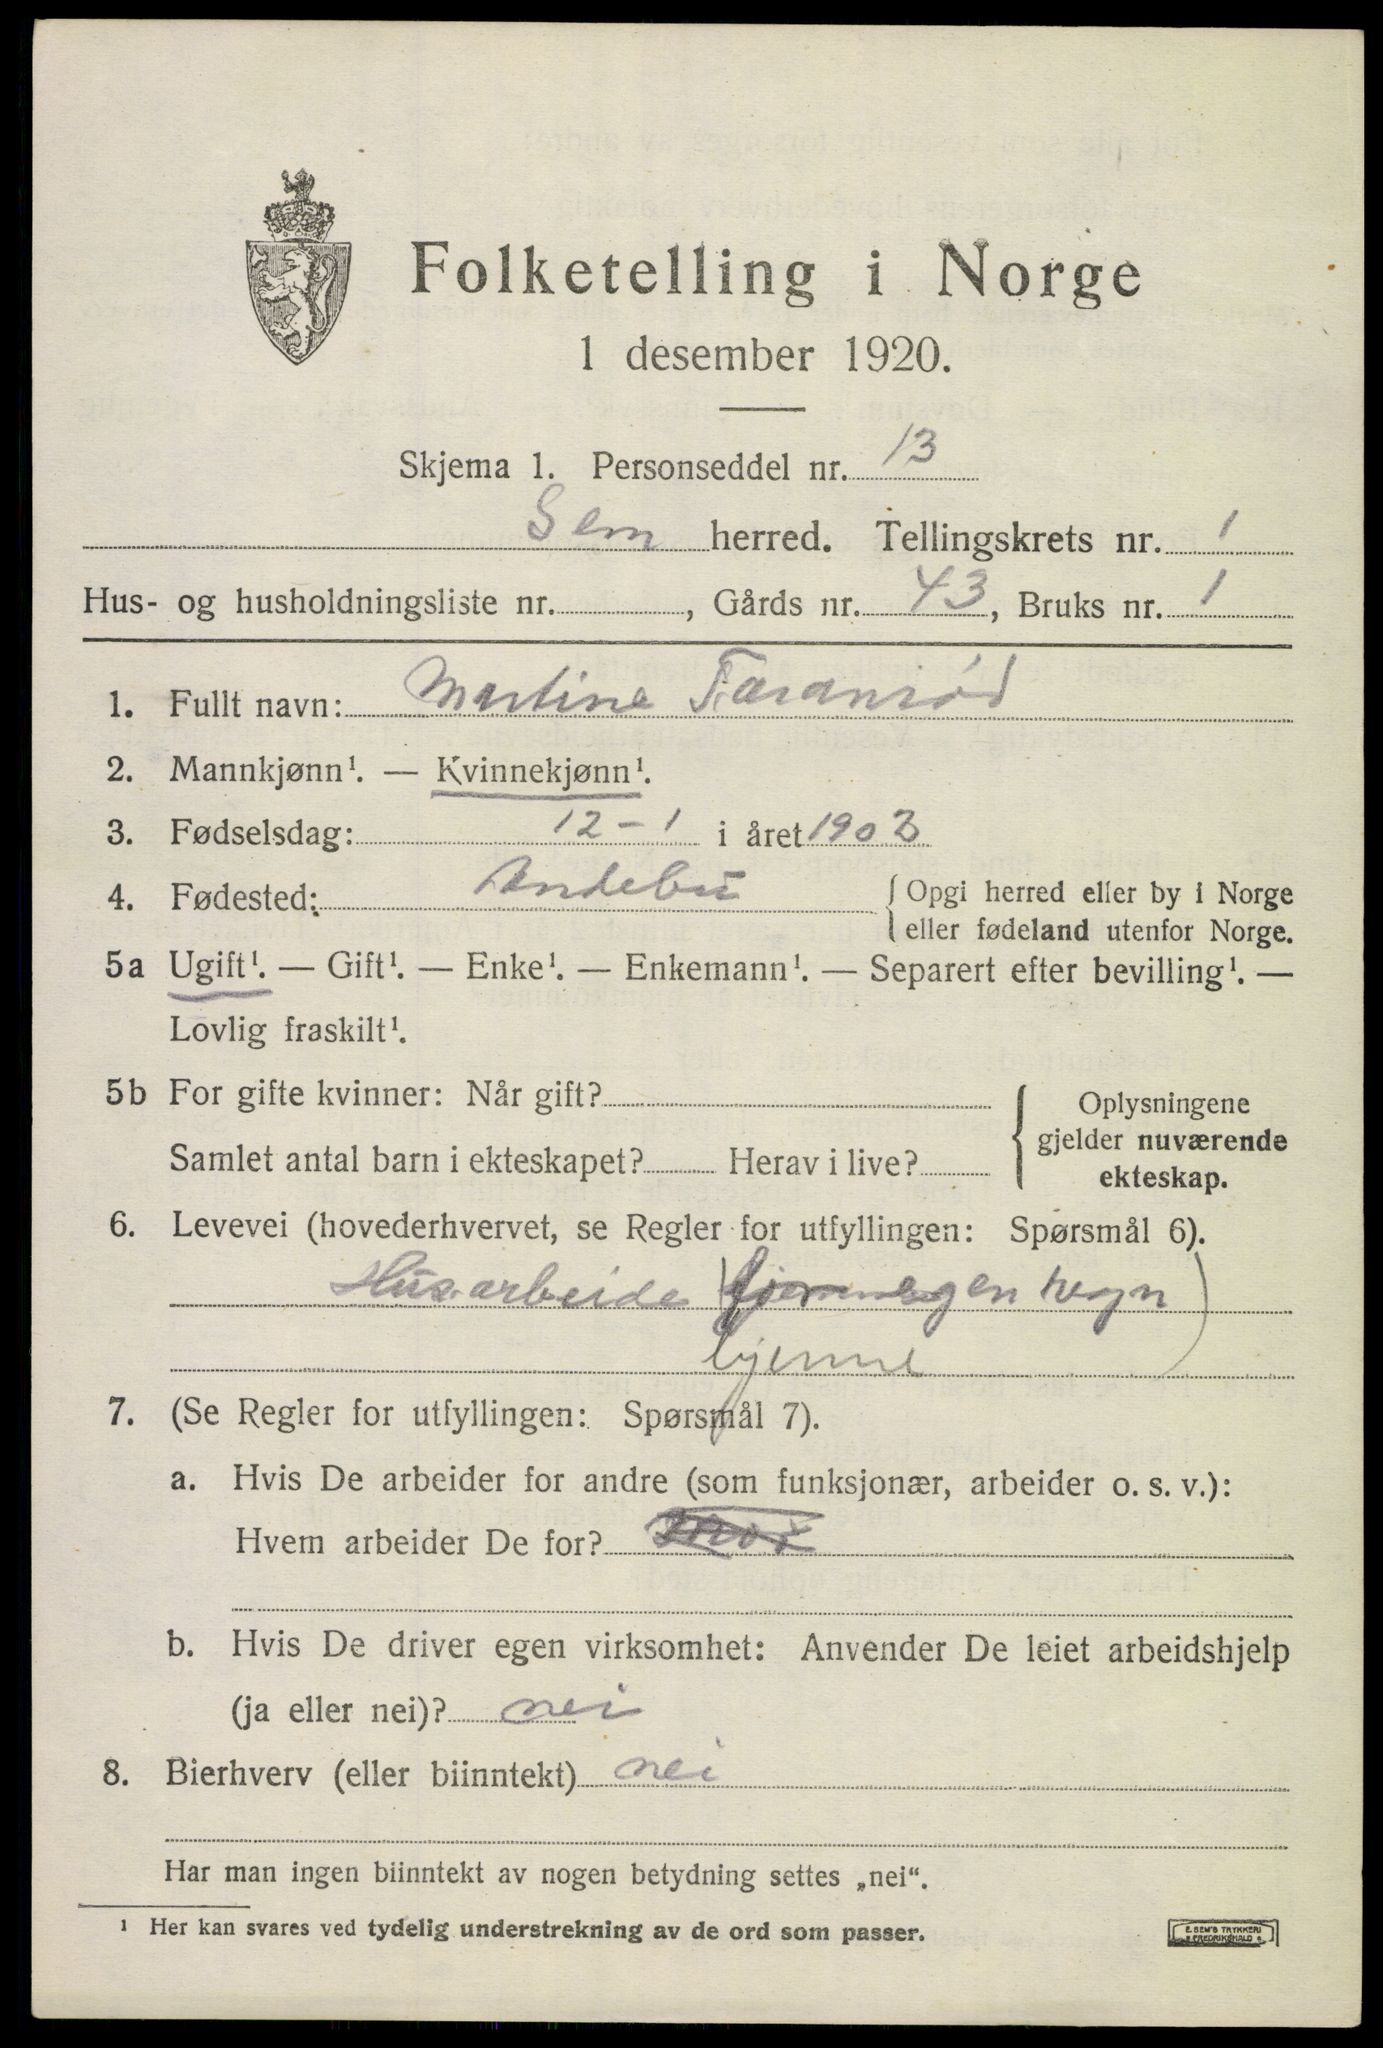 Folketelling i Norge
1 desember 1920.
Skjema 1. Personseddel nr. 13
Sem herred. Tellingskrets nr. 1
Hus- og husholdningsliste nr. , Gårds nr. 43, Bruks nr. 1
1. Fullt navn: Martine Taranrød
2. Mannkjønn¹. — Kvinnekjønn¹.
3. Fødselsdag: 12-1 i året 1903
4. Fødested: Andebu { Opgi herred eller by i Norge
eller fødeland utenfor Norge.
5a Ugift¹. — Gift¹. — Enke¹. — Enkemann¹. — Separert efter bevilling¹. —
Lovlig fraskilt¹.
5b For gifte kvinner: Når gift? { Oplysningene
gjelder nuværende
Samlet antal barn i ekteskapet? Herav i live?
ekteskap.
6. Levevei (hovederhvervet, se Regler for utfyllingen: Spørsmål 6).
Husarbeide egen
hjemme
7. (Se Regler for utfyllingen: Spørsmål 7).
a. Hvis De arbeider for andre (som funksjonær, arbeider o. s. v.):
Hvem arbeider De for?
b. Hvis De driver egen virksomhet: Anvender De leiet arbeidshjelp
(ja eller nei)? nei
8. Bierhverv (eller biinntekt) nei
Har man ingen biinntekt av nogen betydning settes „nei“.
¹ Her kan svares ved tydelig understrekning av de ord som passer.
E. SEM'S TRYKKERI
FREDRIKSHALD